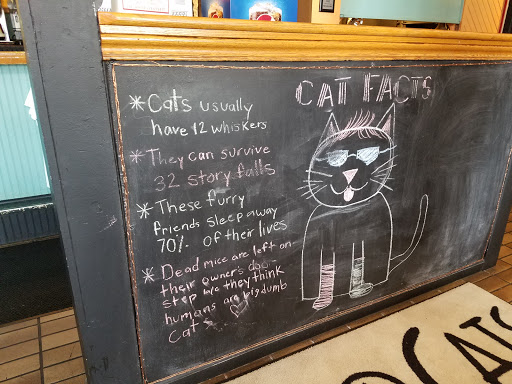 CAT FACTS
* Cats usually
have 12 whiskers
* They can survive
32 story falls
* These furry
friends sleep away
70% of their lives
* Dead mice are left on
their owner's doo-
step b/c they think
humans are big dumb
cats
CATS